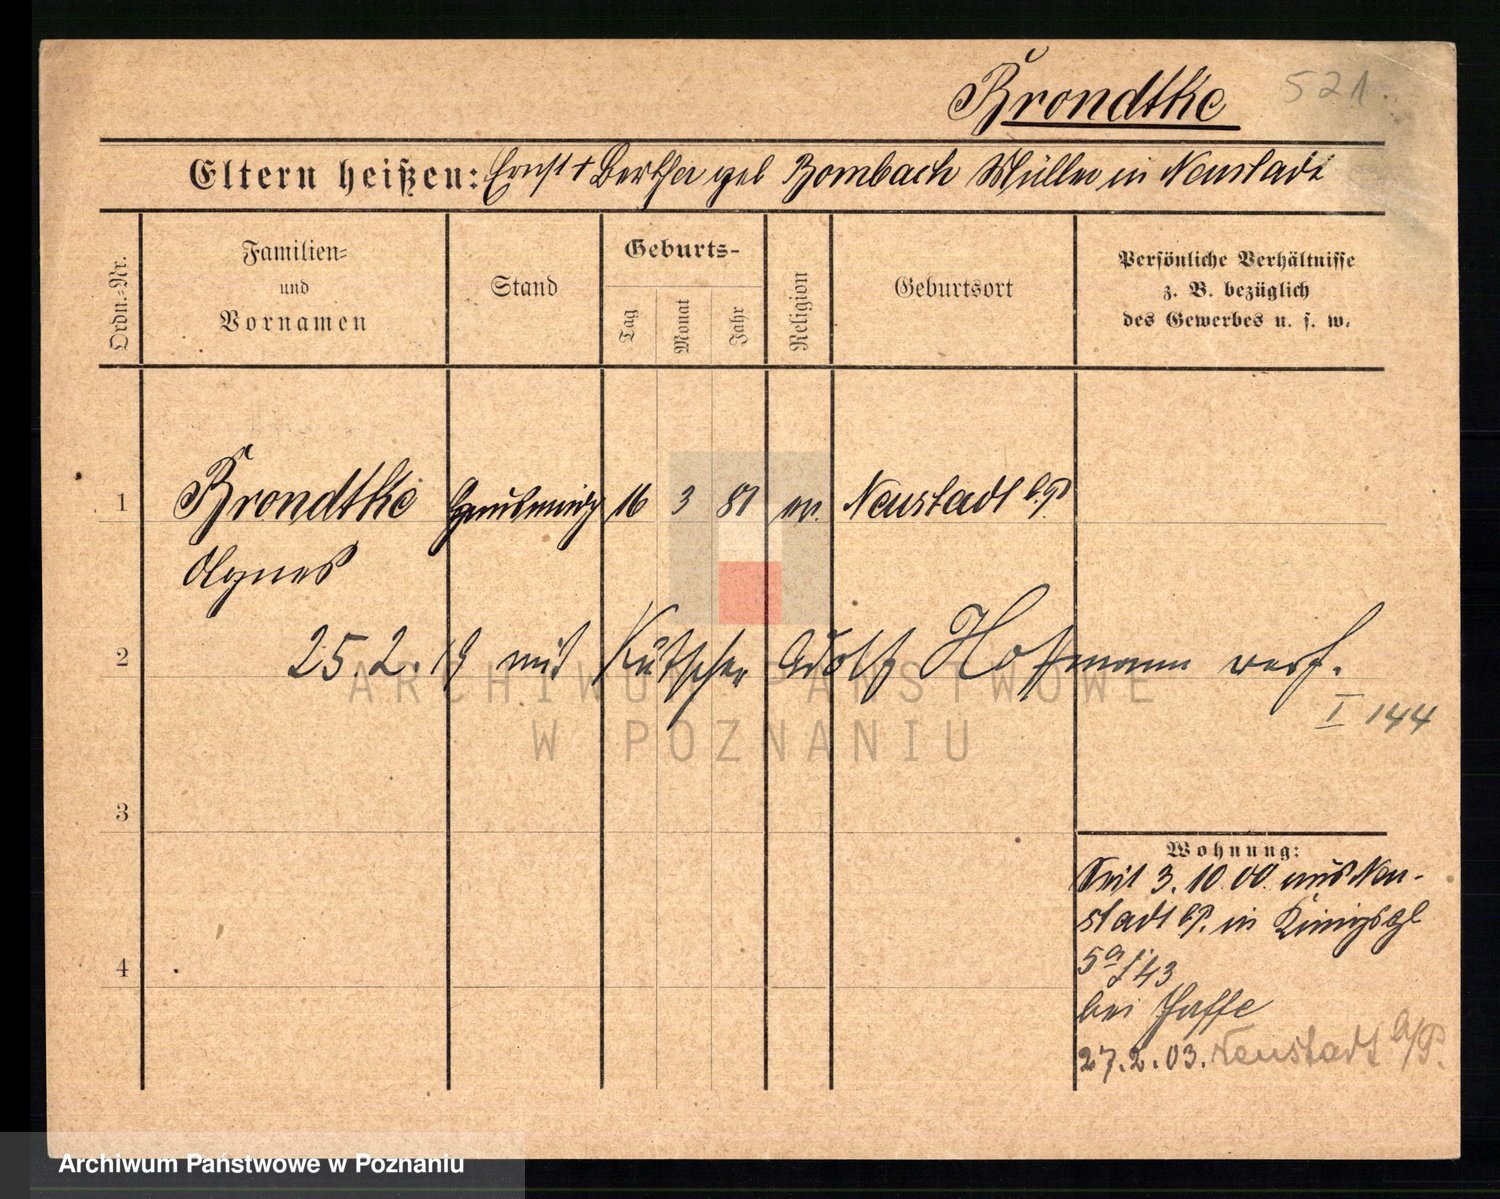 Brondtke 521.
Eltern heißen: Ernst + Bertha geb Bombach Müller in Neustadt
Ordn.-Nr.
Familien- und Vornamen
Stand
Geburts-
Tag
Monat
Jahr
Religion
Geburtsort
Persönliche Verhältnisse
z. B. bezüglich
des Gewerbes u. s. w.
1 Brondtke 16 3 81 ev. Neustadt b.P
Agnes
2 25.2.19 mit Kutscher Adolf Hoffmann verh.
I 144
3
Wohnung:
Seit 3.10.00 aus Neu-
stadt b/P. in Königspl
4
5a
bei Jaffe
27.2.03. Neustadt b/P.
ARCHIWUM PAŃSTWOWE
W POZNANIU
Archiwum Państwowe w Poznaniu